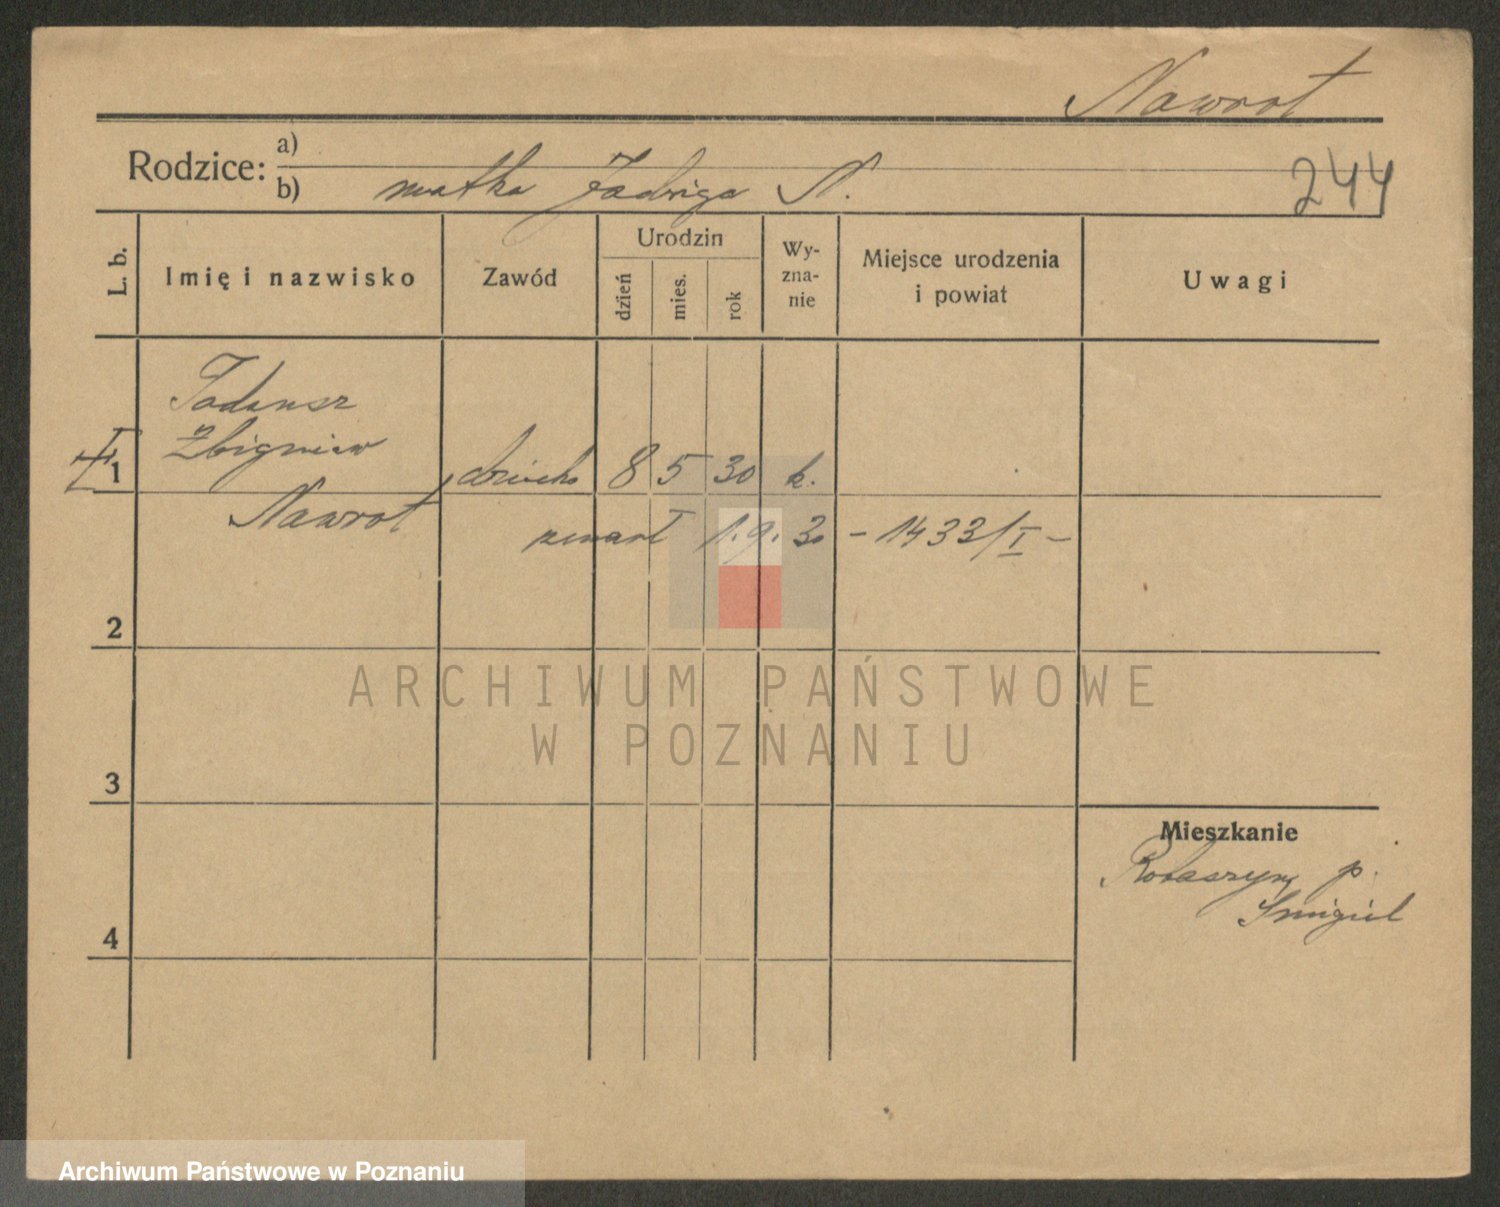 Nawrot
Rodzice:
a)
b) matka Jadwiga N.
244
L. b.
Imię i nazwisko
Zawód
Urodzin
dzień
mies.
rok
Wy-
zna-
nie
Miejsce urodzenia
i powiat
Uwagi
Tadeusz
Zbigniew
1 dziecko 8 5 30 k.
Nawrot
zmarł 1.9.30 - 1433/I -
2
3
4
Mieszkanie
p.
Śmigiel
ARCHIWUM PAŃSTWOWE
W POZNANIU
Archiwum Państwowe w Poznaniu